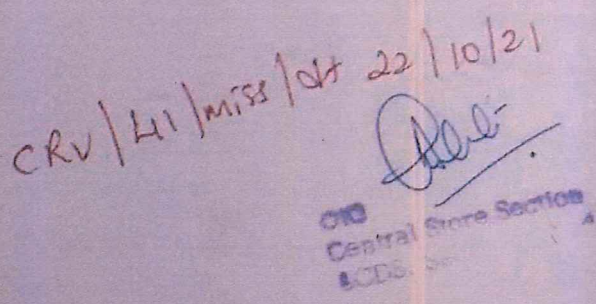 CRV/41/miss/dt 22/10/21
OIC
Central Store Section